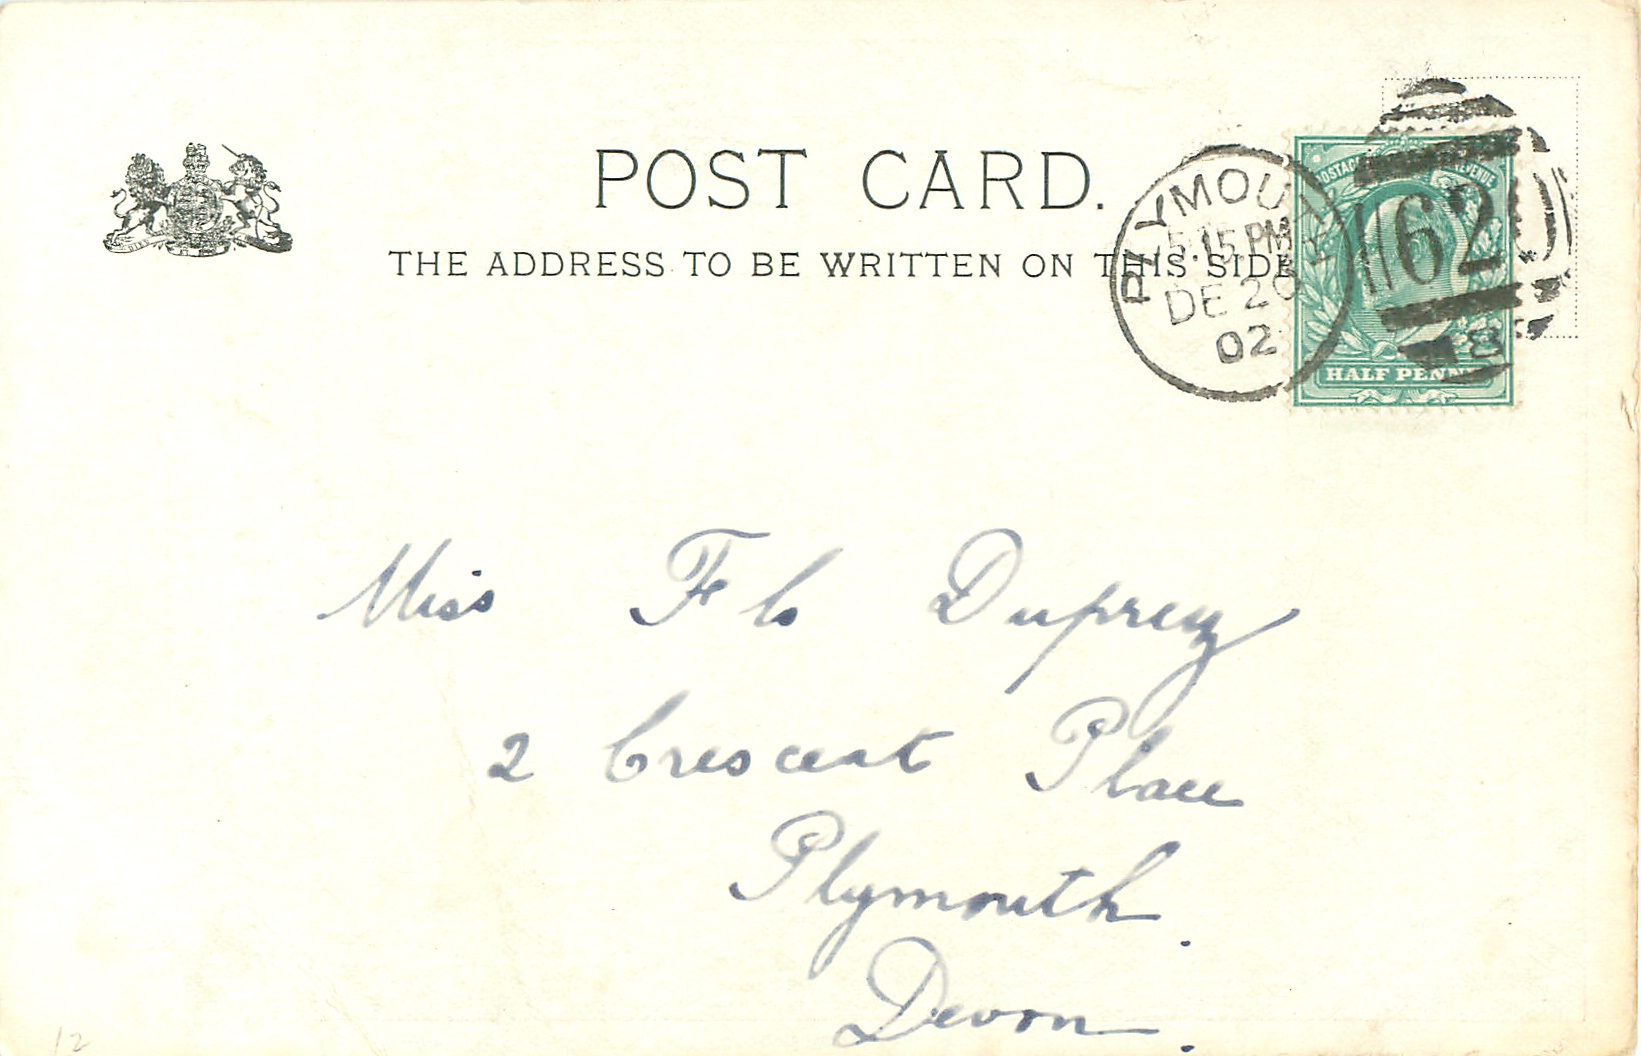 POST CARD.
THE ADDRESS TO BE WRITTEN ON THIS SIDE
PLYMOUTH
5.15.PM
DE 20
02
620
8
POSTAGE REVENUE
HALF PENNY
Miss Flo Duprey
2 Crescent Place
Plymouth.
Devon.
12